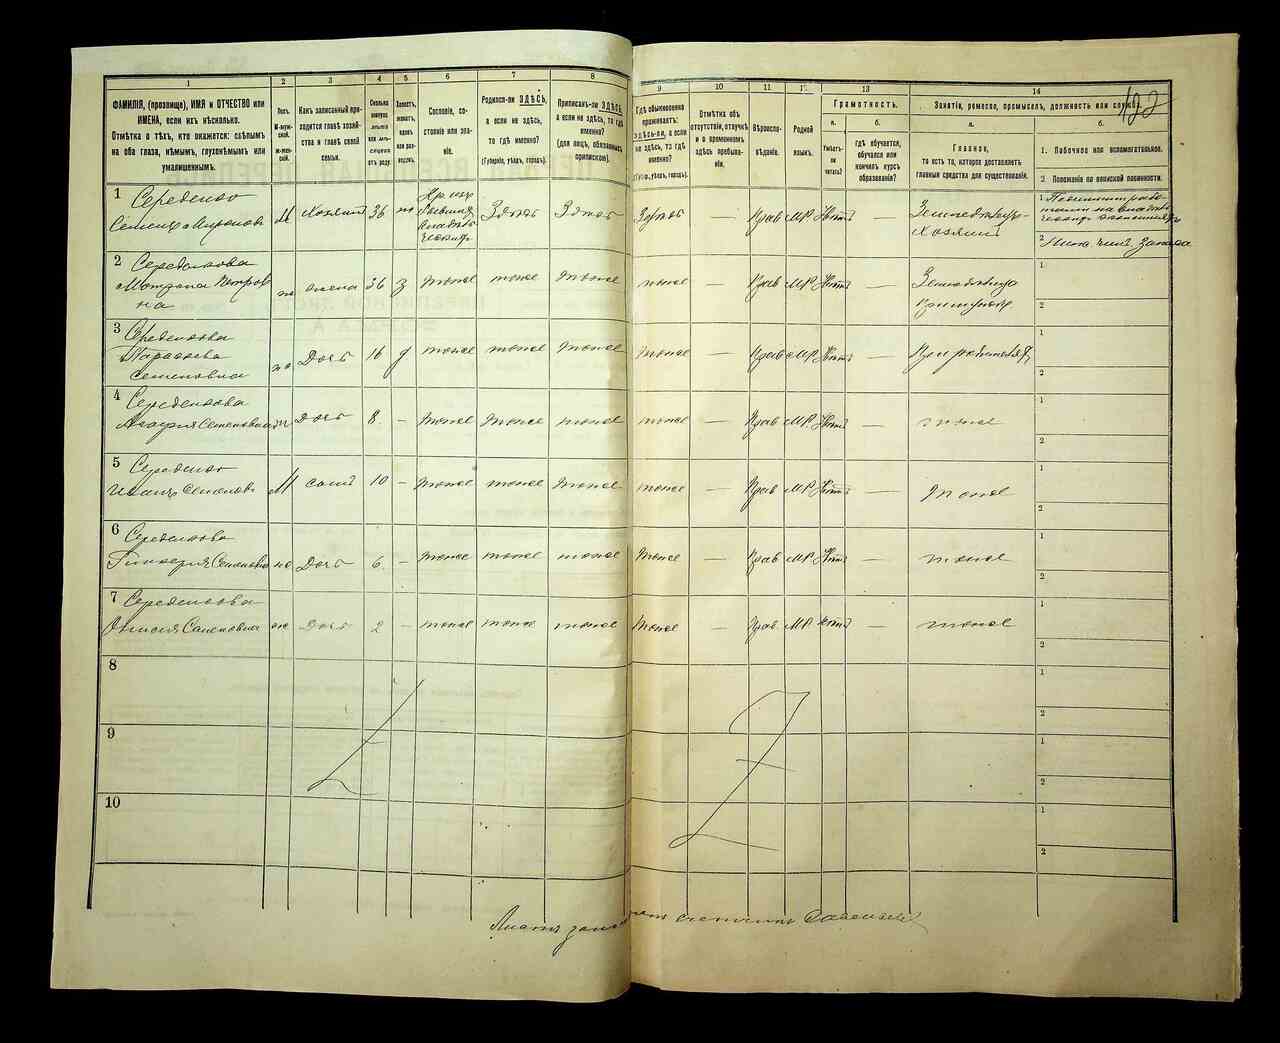 1
ФАМИЛІЯ, (прозвище), ИМЯ и ОТЧЕСТВО или
ИМЕНА, если ихъ нѣсколько.
Отмѣтка о тѣхъ, кто окажется: слѣпымъ
на оба глаза, нѣмымъ, глухонѣмымъ или
умалишеннымъ.
2
Полъ.
М-муж-
ской.
Ж-жен-
скій.
3
Какъ записанный при-
ходится главѣ хозяй-
ства и главѣ своей
семьи.
4
Сколько
минуло
лѣтъ
или мѣ-
сяцевъ
отъ роду.
5
Холостъ,
женатъ,
вдовъ
или раз-
веденъ.
6
Сословіе, со-
стояніе или зва-
ніе.
7
Родился-ли ЗДѢСЬ,
а если не здѣсь,
то гдѣ именно?
(Губернія, уѣздъ, городъ).
8
Приписанъ-ли ЗДѢСЬ,
а если не здѣсь, то гдѣ
именно?
(для лицъ, обязанныхъ
припискою).
9
Гдѣ обыкновенно
проживаетъ:
ЗДѢСЬ-ли, а если
не здѣсь, то гдѣ
именно?
(Губерн., уѣздъ, городъ).
10
Отмѣтка объ
отсутствіи, отлучкѣ
и о временномъ
здѣсь пребыва-
ніи.
11
Вѣроиспо-
вѣданіе.
12
Родной
языкъ.
13
Грамотность.
а.
Умѣетъ-
ли
читать?
б.
гдѣ обучается,
обучался или
кончилъ курсъ
образованія?
14
Занятіе, ремесло, промыселъ, должность или служба.
а.
Главное,
то есть то, которое доставляетъ
главныя средства для существованія.
б.
1. Побочное или вспомогательное.
2. Положеніе по воинской повинности.
122
1 Середенко
Семенъ Мироновъ
М Хозяинъ 36 Здѣсь Здѣсь
Здѣсь — Прав М.Р. Нѣтъ —
Хозяинъ
1
2
2 Середенкова
Матрена Петров
на
ж жена 36 З тоже тоже тоже
тоже — Прав М.Р. Нѣтъ —
1
2
3 Середенкова
Парасьева
Семеновна
ж Дочь 16 д тоже тоже тоже
тоже — Прав М.Р. Нѣтъ —
1
2
4 Середенкова
Семеновна ж Дочь 8 — тоже тоже тоже
тоже — Прав М.Р. Нѣтъ — тоже
1
2
5 Середенко
Иванъ Семеновъ М Сынъ 10 — тоже тоже тоже
тоже — Прав М.Р. Нѣтъ — тоже
1
2
6 Середенкова
Гликерия Семеновна ж Дочь 6 — тоже тоже тоже
тоже — Прав М.Р. Нѣтъ — тоже
1
2
7 Середенкова
Семеновна ж Дочь 2 — тоже тоже тоже
тоже — Прав М.Р. Нѣтъ — тоже
1
2
8
1
2
9
1
2
10
1
2
Листъ